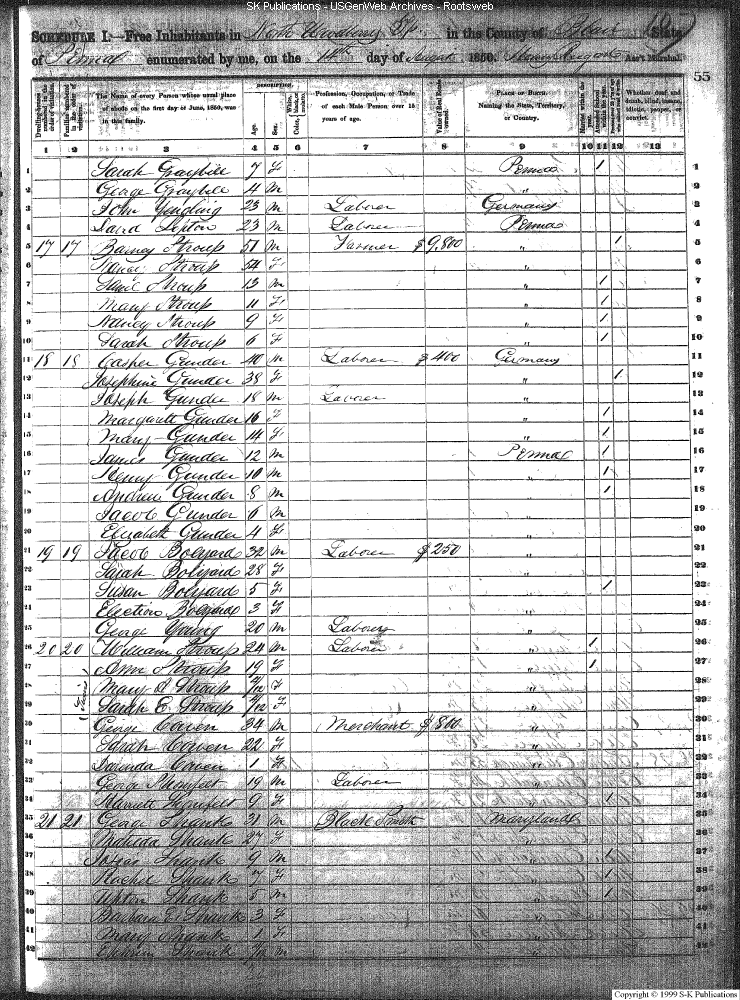 SK Publications - USGenWeb Archives - Rootsweb
SCHEDULE I.—Free Inhabitants in North Woodberry Tp. in the County of Blair State
of Penna enumerated by me, on the 14th day of August 1850. Ass't Marshal.
55
Dwelling-houses numbered in the order of visitation.
Families numbered in the order of visitation.
The Name of every Person whose usual place of abode on the first day of June, 1850, was in this family.
DESCRIPTION.
Age.
Sex.
Color, White, black, or mulatto.
Profession, Occupation, or Trade of each Male Person over 15 years of age.
Value of Real Estate owned.
PLACE OF BIRTH. Naming the State, Territory, or Country.
Married within the year.
Attended School within the year.
Persons over 20 y'rs of age who cannot read & write.
Whether deaf and dumb, blind, insane, idiotic, pauper, or convict.
1 2 3 4 5 6 7 8 9 10 11 12 13
1 Sarah Graybill 7 F Penna 1 1
2 George Graybill 4 M " 2
3 John Yingling 23 M Laborer Germany 3
4 David Lepton 23 M Laborer Penna 4
5 17 17 Barney Stroup 51 M Farmer $9,800 " 1 5
6 Stroup 54 F " 6
7 Stroup 13 M " 1 7
8 Mary Stroup 11 F " 1 8
9 Nancy Stroup 9 F " 1 9
10 Sarah Stroup 6 F " 1 10
11 18 18 Casper Gunder 40 M Laborer $400 Germany 11
12 Josephine Gunder 38 F " 1 12
13 Joseph Gunder 18 M Laborer " 13
14 Margarett Gunder 16 F " 1 14
15 Mary Gunder 14 F " 1 15
16 James Gunder 12 M Penna 1 16
17 Henry Gunder 10 M " 1 17
18 Andrew Gunder 8 M " 1 18
19 Jacob Gunder 6 M " 19
20 Elizabeth Gunder 4 F " 20
21 19 19 Jacob Bolyard 32 M Laborer $250 " 21
22 Sarah Bolyard 28 F " 22
23 Susan Bolyard 5 F " 1 23
24 Bolyard 3 F " 24
25 George Young 20 M Laborer " 25
26 20 20 William Stroup 24 M Laborer " 1 26
27 Ann Stroup 19 F " 1 27
28 (Twins) Mary A Stroup /12 F " 28
29 Sarah E. Stroup /12 F " 29
30 George Cowen 34 M Merchant $800 " 30
31 Sarah Cowen 22 F " 31
32 Cowen 1 F " 32
33 George 19 M Laborer " 33
34 9 F " 1 34
35 21 21 George Shank 31 M Black Smith Maryland 35
36 Matilda Shank 27 F " 36
37 Shank 9 M " 1 37
38 Rachel Shank 7 F " 1 38
39 Upton Shank 5 M " 1 39
40 Barbara E. Shank 3 F " 40
41 Mary Shank 1 F " 41
42 Ephraim Shank /12 M " 42
Copyright © 1999 S-K Publications